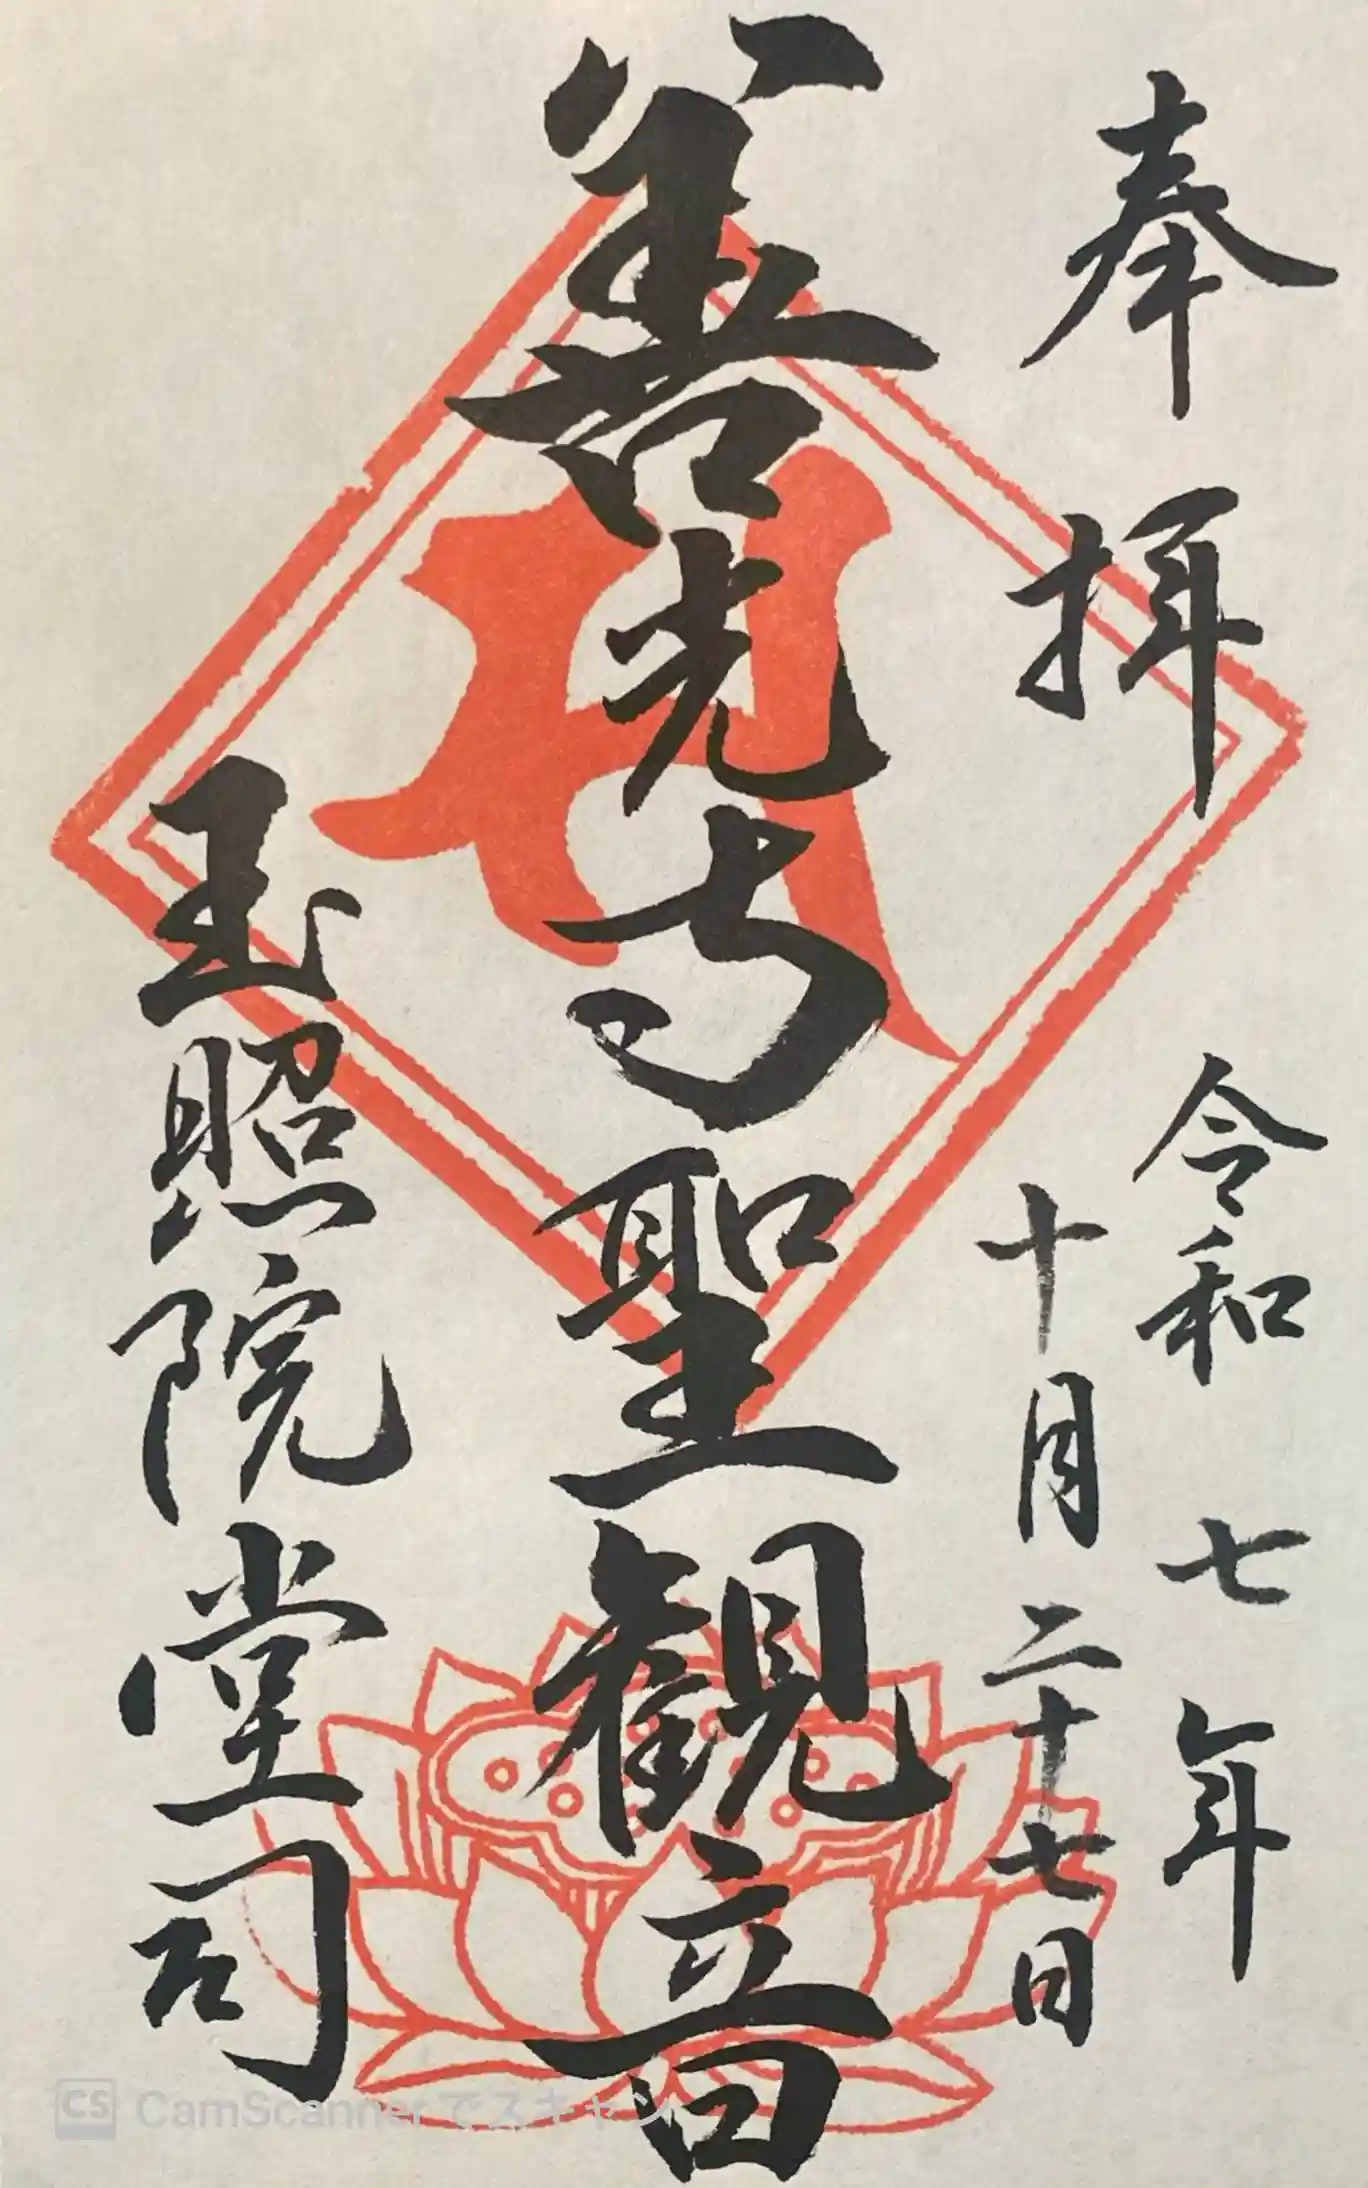 奉拝
令和七年
十月二十七日
善光寺聖観音
玉照院堂司
CS CamScannerでスキャン